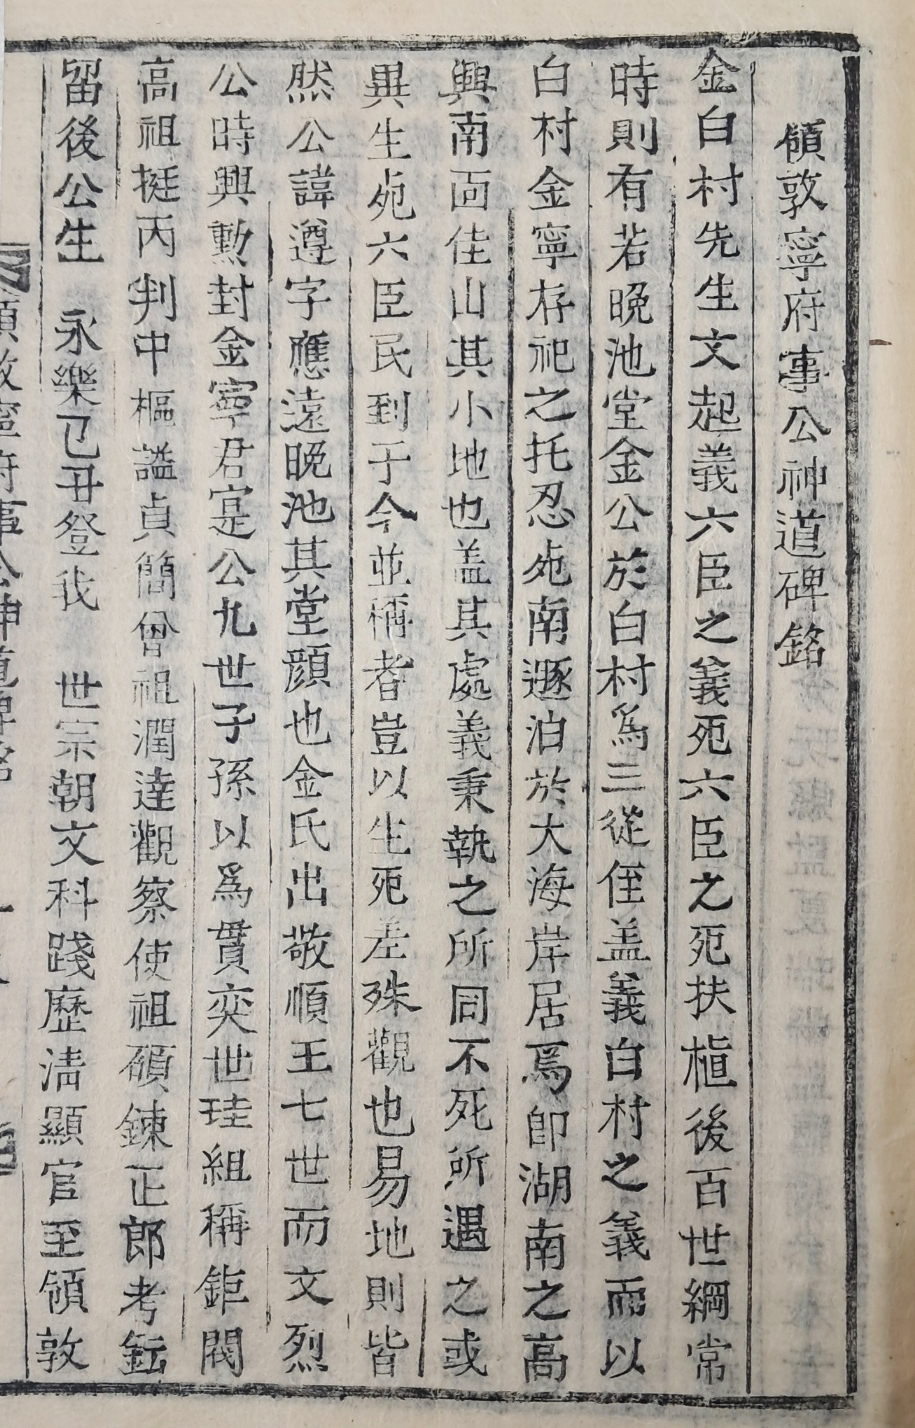 領敦寧府事公神道碑銘
金白村先生文起義六臣之義死六臣之死扶植後百世綱常
時則有若晩池堂金公於白村爲三從侄盖義白村之義而以
白村金寧存祀之托忍死南遯泊於大海岸居焉卽湖南之高
興南面佳山其小地也盖其處義秉執之所同不死所遇之或
異生死六臣民到于今並稱者豈以生死差殊觀也易地則皆
然公諱遵字應遠晩池其堂顔也金氏出敬順王七世而文烈
公時興勳封金寧君寔公九世子孫以爲貫奕世珪組稱鉅閥
高祖挺丙判中樞謚貞簡曾祖潤達觀察使祖碩鍊正郞考鈜
留後公生 永樂己丑登我 世宗朝文科踐歷淸顯官至領敦
領敦寧府事公神道碑銘